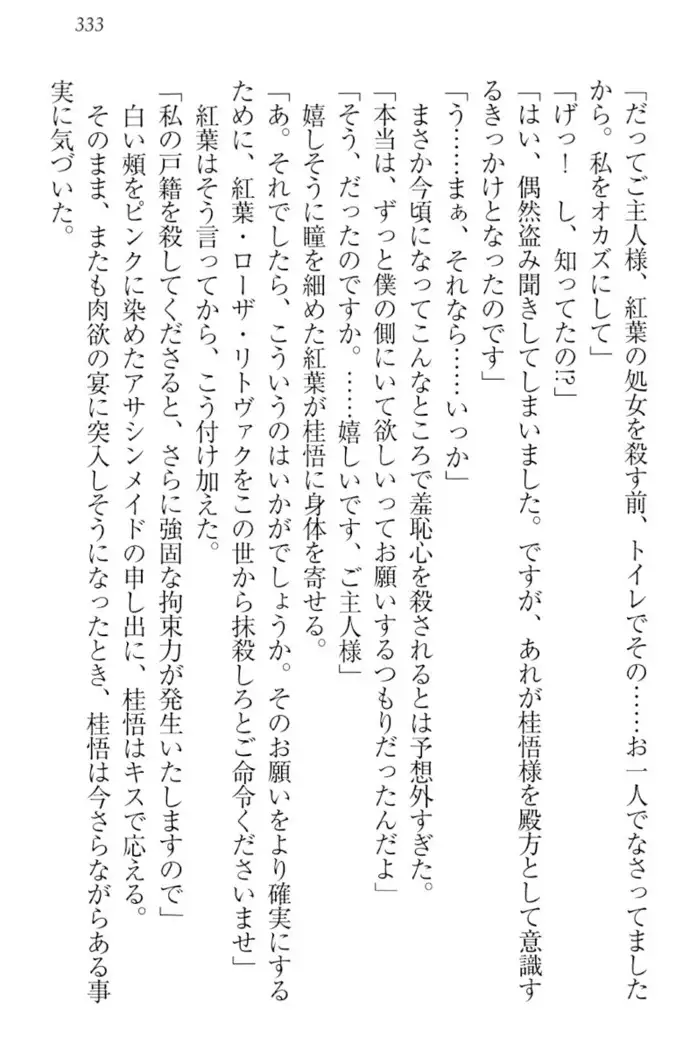 333
「だってご主人様、紅葉の処女を殺す前、トイレでその……お一人でなさってました
から。私をオカズにして」
「げっ！　し、知ってたの!?」
「はい、偶然盗み聞きしてしまいました。ですが、あれが桂悟様を殿方として意識す
るきっかけとなったのです」
「う……まぁ、それなら……いっか」
まさか今頃になってこんなところで羞恥心を殺されるとは予想外すぎた。
「本当は、ずっと僕の側にいて欲しいってお願いするつもりだったんだよ」
「そう、だったのですか。……嬉しいです、ご主人様」
嬉しそうに瞳を細めた紅葉が桂悟に身体を寄せる。
「あ。それでしたら、こういうのはいかがでしょうか。そのお願いをより確実にする
ために、紅葉・ローザ・リトヴァクをこの世から抹殺しろとご命令くださいませ」
紅葉はそう言ってから、こう付け加えた。
「私の戸籍を殺してくださると、さらに強固な拘束力が発生いたしますので」
白い頰をピンクに染めたアサシンメイドの申し出に、桂悟はキスで応える。
そのまま、またも肉欲の宴に突入しそうになったとき、桂悟は今さらながらある事
実に気づいた。